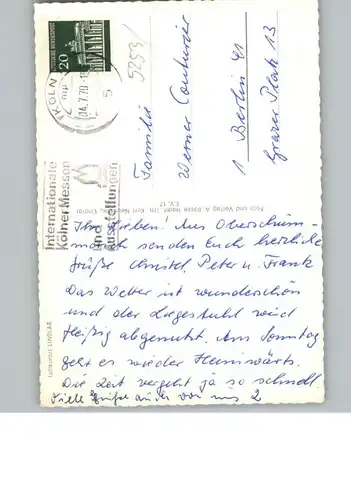 KÖLN
04.7.70
5
DEUTSCHE BUNDESPOST
20
Internationale
Kölner Messen
und
Ausstellungen
5253/
Familie
Werner
1 Berlin 41
Grazer Platz 13
Foto und Verlag A.
Luftkurort LINDLAR
Ihr Lieben. Aus
senden Euch herzliche
Grüße Christel, Peter u. Frank
Das Wetter ist wunderschön
und der Liegestuhl wird
fleißig abgenutzt. Am Sonntag
geht es wieder Heimwärts.
Die Zeit vergeht ja so schnell.
Viele Grüße auch von uns 2